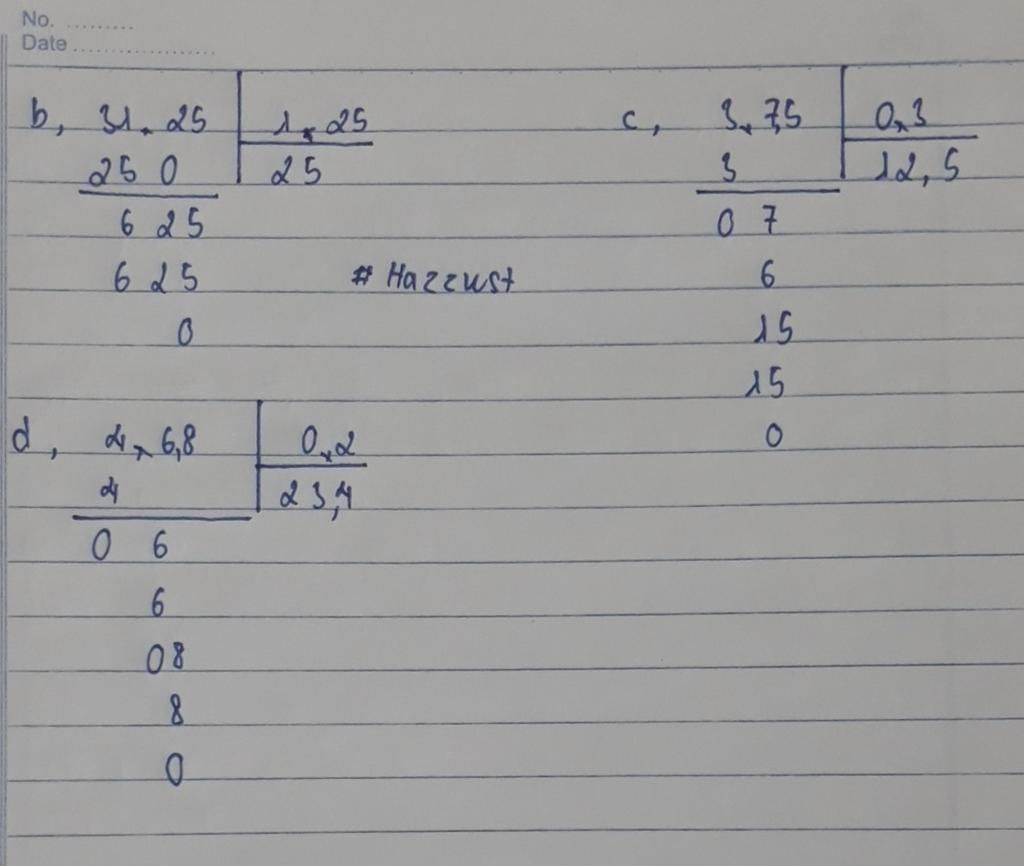 No. .........
Date ....................
b, 31.25 | 1.25
25 0 | 25
6 25
6 25
0
# Hazzust
c, 3,7,5 | 0,3
3 | 12,5
0 7
6
15
15
0
d, 4,6,8 | 0,2
4 | 23,4
0 6
6
08
8
0